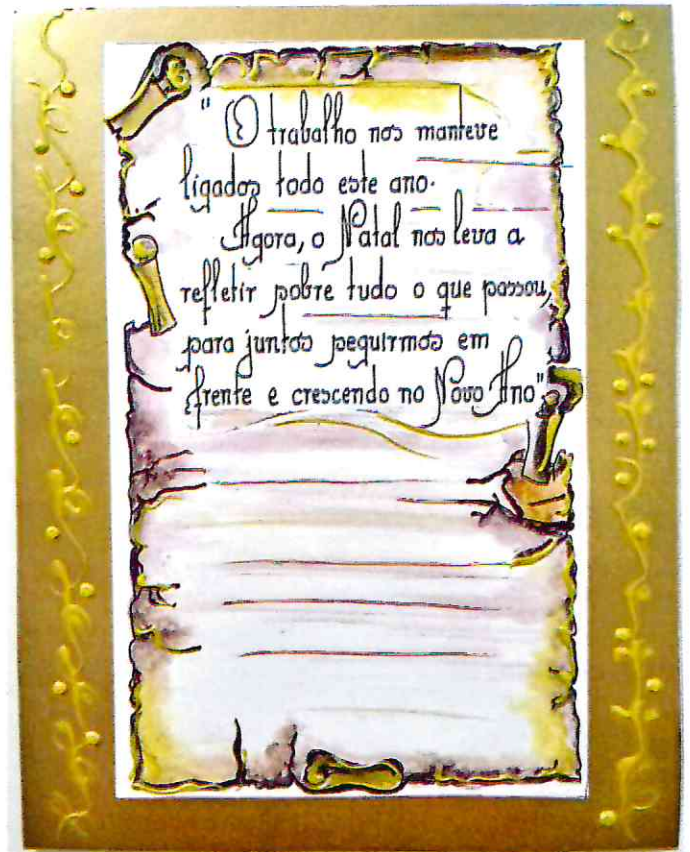 "O trabalho nos manteve
ligados todo este ano.
Agora, o Natal nos leva a
refletir sobre tudo o que passou,
para juntos seguirmos em
frente e crescendo no Novo Ano"